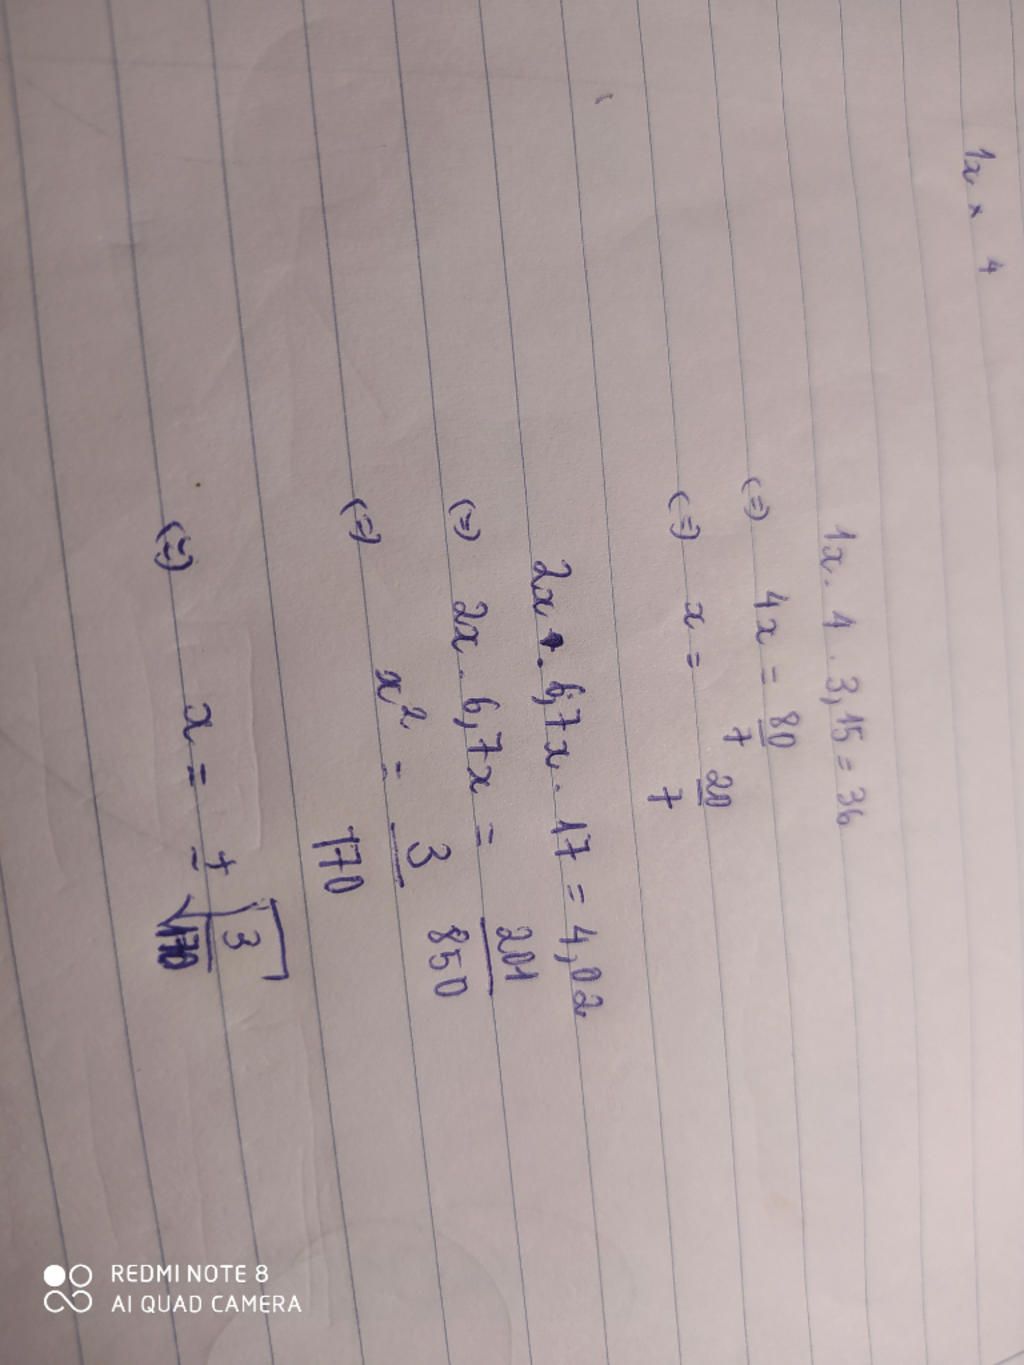 1x × 4
1x . 4 . 3,15 = 36
(=) 4x = 80/7
(=) x = 20/7
2x . 6,7x . 17 = 4,02
(=) 2x . 6,7x = 201/850
(=) x² = 3/170
(=) x = ± √(3/170)
REDMI NOTE 8
AI QUAD CAMERA